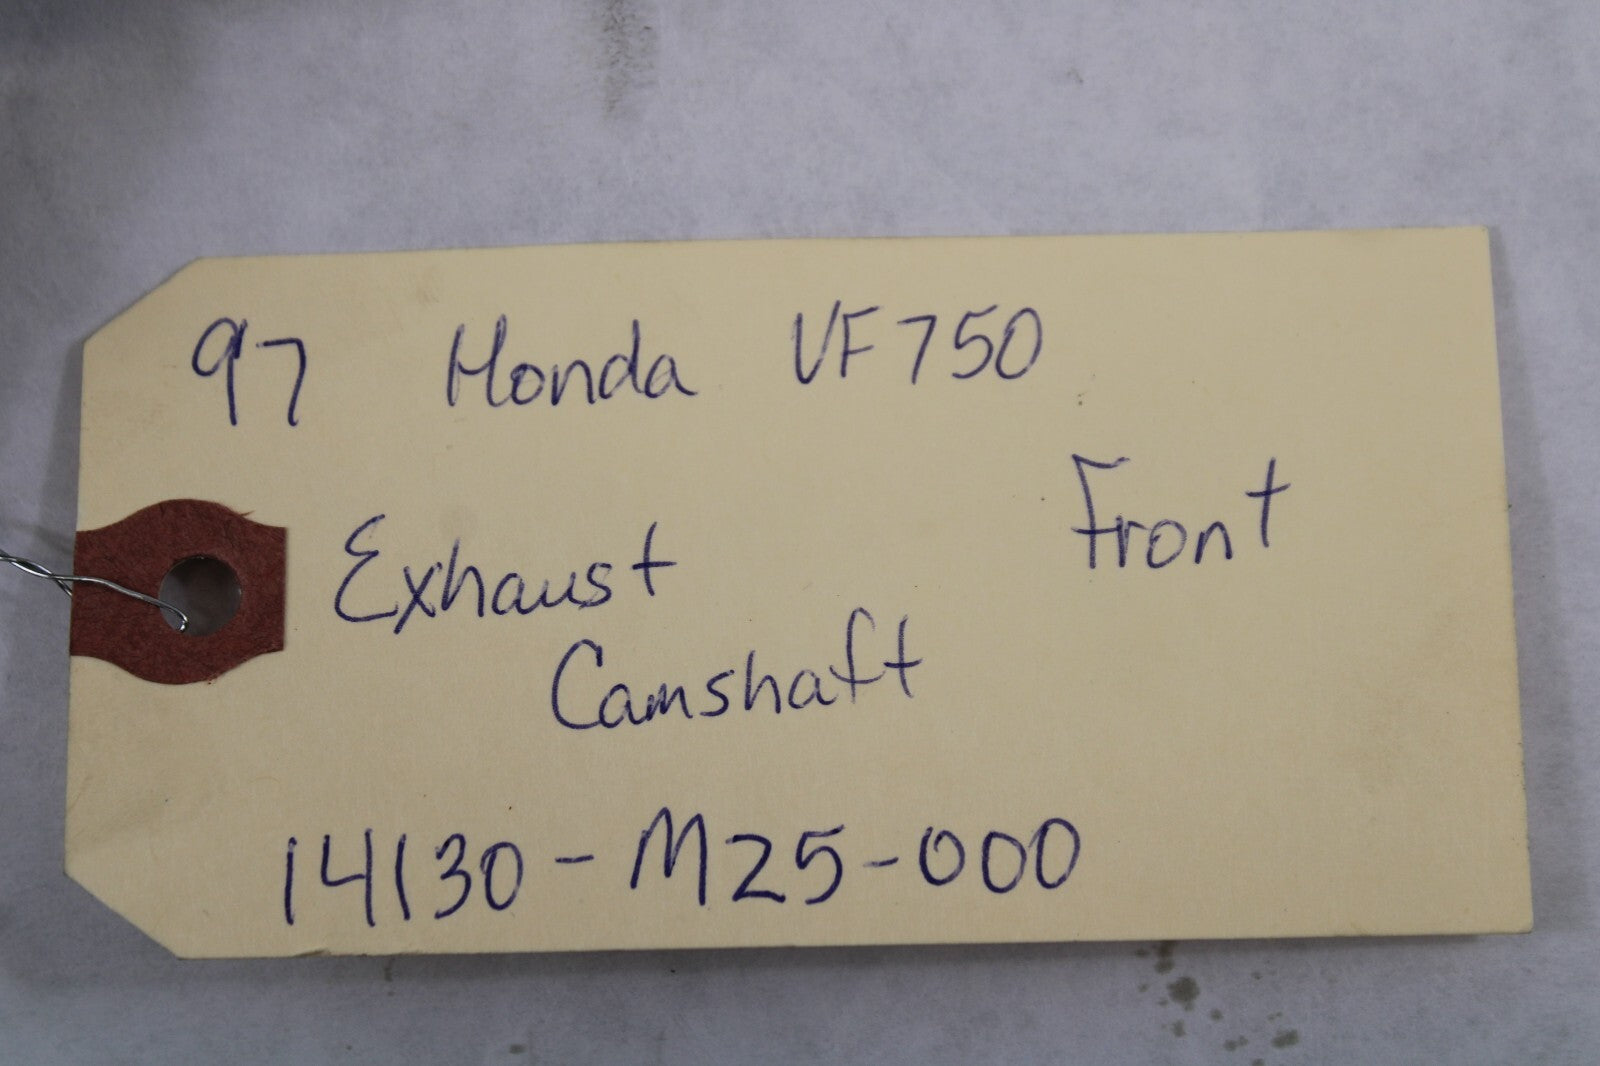 97 Honda VF750
Front
Exhaust
Camshaft
14130-M25-000